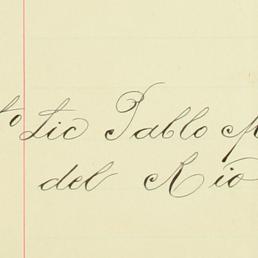 to Lic Pablo M
del Rio